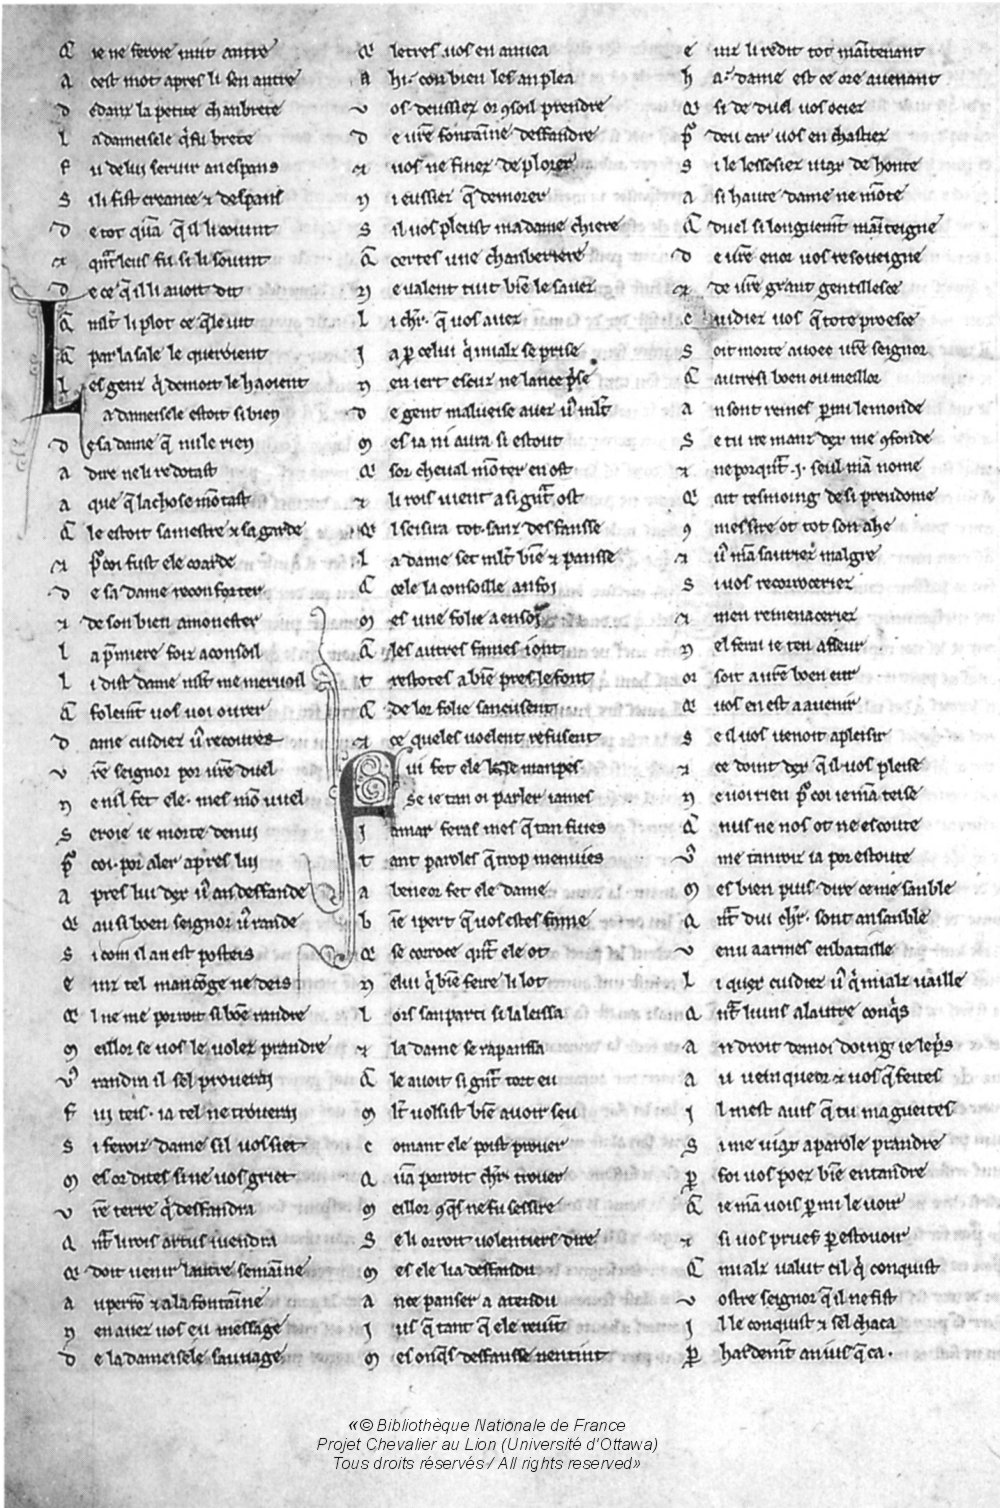 Q ie ne feroie nuit autre
A cest mot apres li sen antre
D edanz la petite chanbrete
L a dameisele q̃ fu brete
F u de lui servir an espans
S i li fist creance & despans
D e tot quã q̃ il li covint
& qñt leus fu si li sovint
D e ce q̃ il li avoit dit
Q mlt̃ li plot ce q̃ le vit
Q par la sale le queroient
L es genz q̃ de mort le haoient
L a dameisele estoit si bien
D e sa dame q̃ nule rien
A dire ne li redotast
A que q̃ la chose mõtast
Q le estoit sa mestre & sa garde
& p̃coi fust ele coarde
D e sa dame reconforter
& de son bien amonester
L a p̃miere foiz a consoil
L i dist dame mlt̃ me mervoil
Q folemt̃ vos voi ovrer
D ame cuidiez v̾ recovrer
V r̃e seignor por vr̃e duel
N enil fet ele mes mõ vuel
S eroie ie morte denui
P̃ coi por aler apres lui
A pres lui dex v̾ an deffande
& ausi boen seignor v̾ rande
S i com il an est posteis
E inz tel mancõge ne deis
Q l ne me porroit si bõe randre
M eillor se vos le volez prandre
V̾ randra il sel proverai
F ui teis ia tel ne troverai
S i feroiz dame sil vos siet
M es or dites si ne vos griet
V r̃e terre q̃ desfandra
Q nt̃ li rois artus i vendra
Q doit venir lautre semainne
A u perrõ & a la fontainne
N en avez vos eu message
D e la dameisele sauvage
Q letres vos en envea
A hi con bien les anplea
V os deussiez or 9soil prendre
D e vr̃e fontainne desfandre
& vos ne finez de plorer
N i eussiez q̃ demorer
S il vos pleust ma dame chiere
Q certes une chanberiere
N e valent tuit biẽ le savez
L i chr̃ q̃ vos avez
I a p̱ celui q̃ mialz se prise
N en iert escuz ne lance p̃se
D e gent malveise avez v̾ mlt̃
M es ia ni avra si estout
Q sor cheval mõter en ost
& li rois vient a si grñt ost
Q l seisira tot sanz desfansse
L a dame set mlt̃ biẽ & pansse
Q cele la consoille an foi
M es une folie a en soi
Q les autres fames i ont
T restotes a biẽ pres le font
Q de lor folie sancusent
& ce queles voelent refusent
F ui fet ele lesse man pes
S e ie tan oi parler iames
I a mar feras mes q̃ tan fuies
T ant paroles q̃ trop menuies
A beneor fet ele dame
B iẽ i pert q̃ vos estes fame
Q se corroce qñt ele ot
N elui q̃ biẽ feire li lot
L ors san parti si la leissa
& la dame se rapanssa
Q le avoit si grñt tort eu
M lt̃ volsist biẽ avoir seu
C omant ele poist prover
Q uã porroit chr̃ trover
M eillor 9q̃s ne fu ses sire
S e li orroit volentiers dire
M es ele lia desfandu
A n ce panser a atendu
I us q̃ tant q̃ ele revint
M es onq̃s desfansse nen tint
E inz li redit tot maintenant
H a dame est ce ore avenant
Q si de duel vos ociez
P̱ deu car vos en chastiez
S i le lessiez viax de honte
A si haute dame ne mõte
Q duel si longuemt̃ maiteigne
D e vr̃e enor vos resoveigne
& de vr̃e grant gentillesce
C uidiez vos q̃ tote proesce
S oit morte avoec vr̃e seignor
Q autresi boen ou meillor
A n sont remes p̱mi le monde
S e tu ne manz dex me 9fonde
& ne porquñt .i. seul mã nome
Q ait tesmoing de si preudome
9 mes sire ot tot son ahe
& v̾ mã savriez malgre
S i vos recorroceriez
& men remenaceriez
N el ferai ie ten asseur
Or soit a vr̃e boen eur
Q vos en est a avenir
S e il vos venoit a pleisir
& ce doint dex q̃ il vos pleise
N e voi rien p̃coi ie mã teise
Q nus ne nos ot ne escoute
V̾ me tanroiz ia por estoute
M es bien puis dire ce me sanble
Q nt̃ dui chr̃ sont ansanble
V enu a armes en bataille
L i quex cuidiez v̾ q̃ mialz vaille
Q nt̃ li uns a lautre conq̃s
A n droit de moi doing ie le p̃s
A u veinqueor & vos q̃ feites
I l mest avis q̃ tu magueites
S i me viax a parole prandre
P̱ foi vos poez biẽ entandre
Q ie mã vois p̱mi le voir
& si vos pruef p̱ estovoir
Q mialz valut cil q̃ conquist
V ostre seignor q̃ il ne fist
I l le conquist & sel chaca
P̱ hardemt̃ an ius q̃ ca.
«© Bibliothèque Nationale de France
Projet Chevalier au Lion (Université d'Ottawa)
Tous droits réservés / All rights reserved»